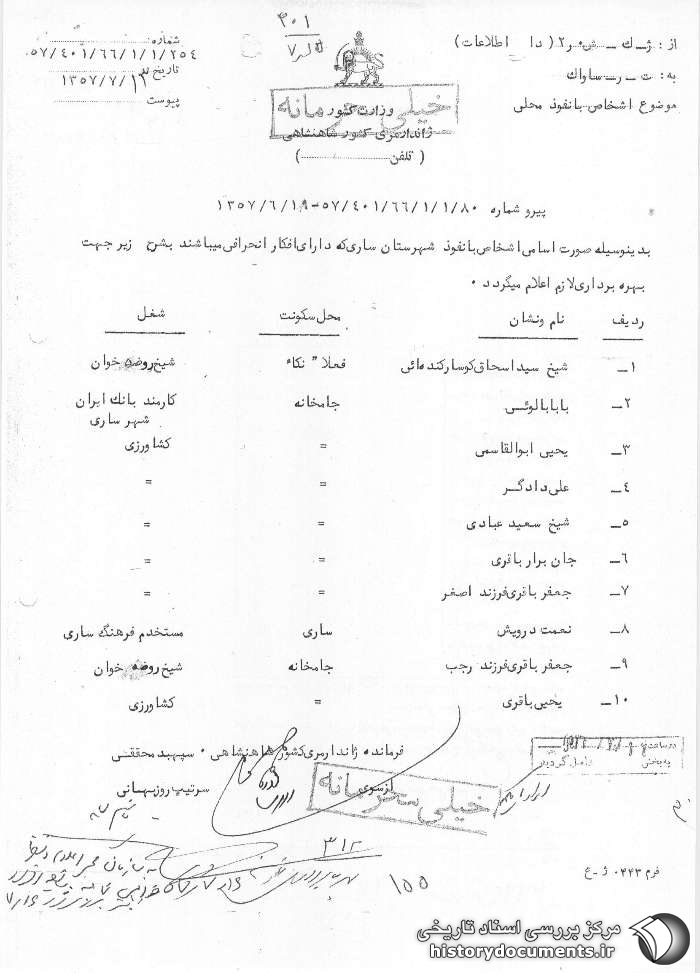 ۴۰۱
از: ژ ـ ك ـ ش ـ ر۲ (دا اطلاعات)
به: ت ـ ر ـ ساواك
موضوع اشخاص بانفوذ محلی
وزارت کشور
ژاندارمری کشور شاهنشاهی
(تلفن)
خیلی محرمانه
شماره
۵۷/٤۰۱/٦٦/۱/۱/۲٥٤
تاریخ
۱۳٥۷/۷/۱۲
پیوست
پیرو شماره ۵۷/٤۰۱/٦٦/۱/۱/۸۰-۱۳٥۷/٦/۱۹
بدینوسیله صورت اسامی اشخاص بانفوذ شهرستان ساری که دارای افکار انحرافی میباشند بشرح زیر جهت
بهره برداری لازم اعلام میگردد .
ردیف نام ونشان محل سکونت شغل
۱ـ شیخ سید اسحاق کوسارکنده ائی فعلا" نکاء شیخ روضه خوان
۲ـ بابابالوئی جامخانه کارمند بانك ایران
شهر ساری
۳ـ یحیی ابوالقاسمی = کشاورزی
٤ـ علی دادگر = =
٥ـ شیخ سعید عبادی = =
٦ـ جان برار باقری = =
۷ـ جعفر باقری فرزند اصغر = =
۸ـ نعمت درویش ساری مستخدم فرهنگ ساری
۹ـ جعفر باقری فرزند رجب جامخانه شیخ روضه خوان
۱۰ـ یحیی باقری = کشاورزی
فرمانده ژاندارمری کشور شاهنشاهی . سپهبد محققی
ازسوی سرتیپ روزبهانی
خیلی محرمانه
۳۱۲
۱۵۵
فرم ۰٤٤۳ ژ-ع
مرکز بررسی اسناد تاریخی
historydocuments.ir